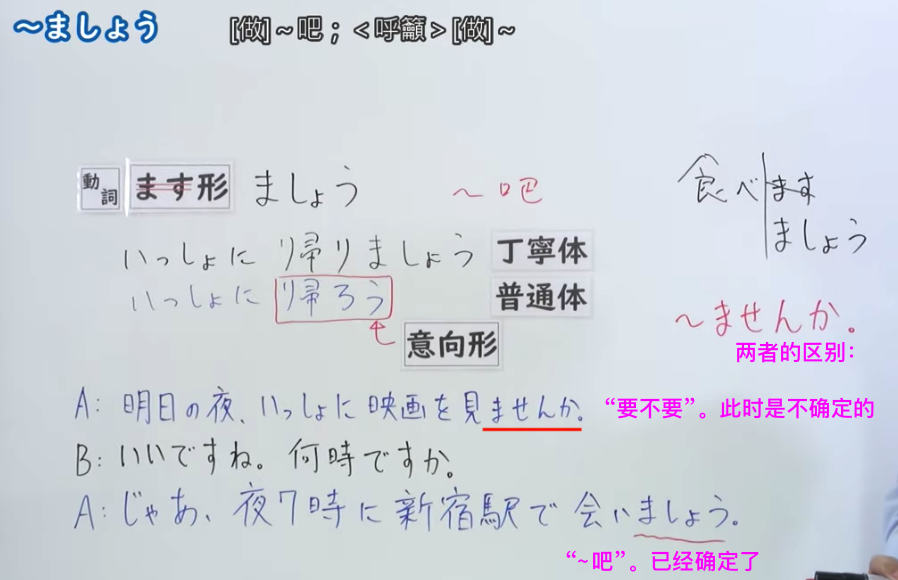 ～ましょう [做]～吧；＜呼籲＞[做]～
動詞 ます形 ましょう ～吧
食べます
ましょう
いっしょに 帰りましょう 丁寧体
いっしょに 帰ろう 普通体
意向形
～ませんか。
两者的区别：
A: 明日の夜、いっしょに映画を見ませんか。“要不要”。此时是不确定的
B: いいですね。何時ですか。
A: じゃあ、夜7時に新宿駅で会いましょう。
“~吧”。已经确定了